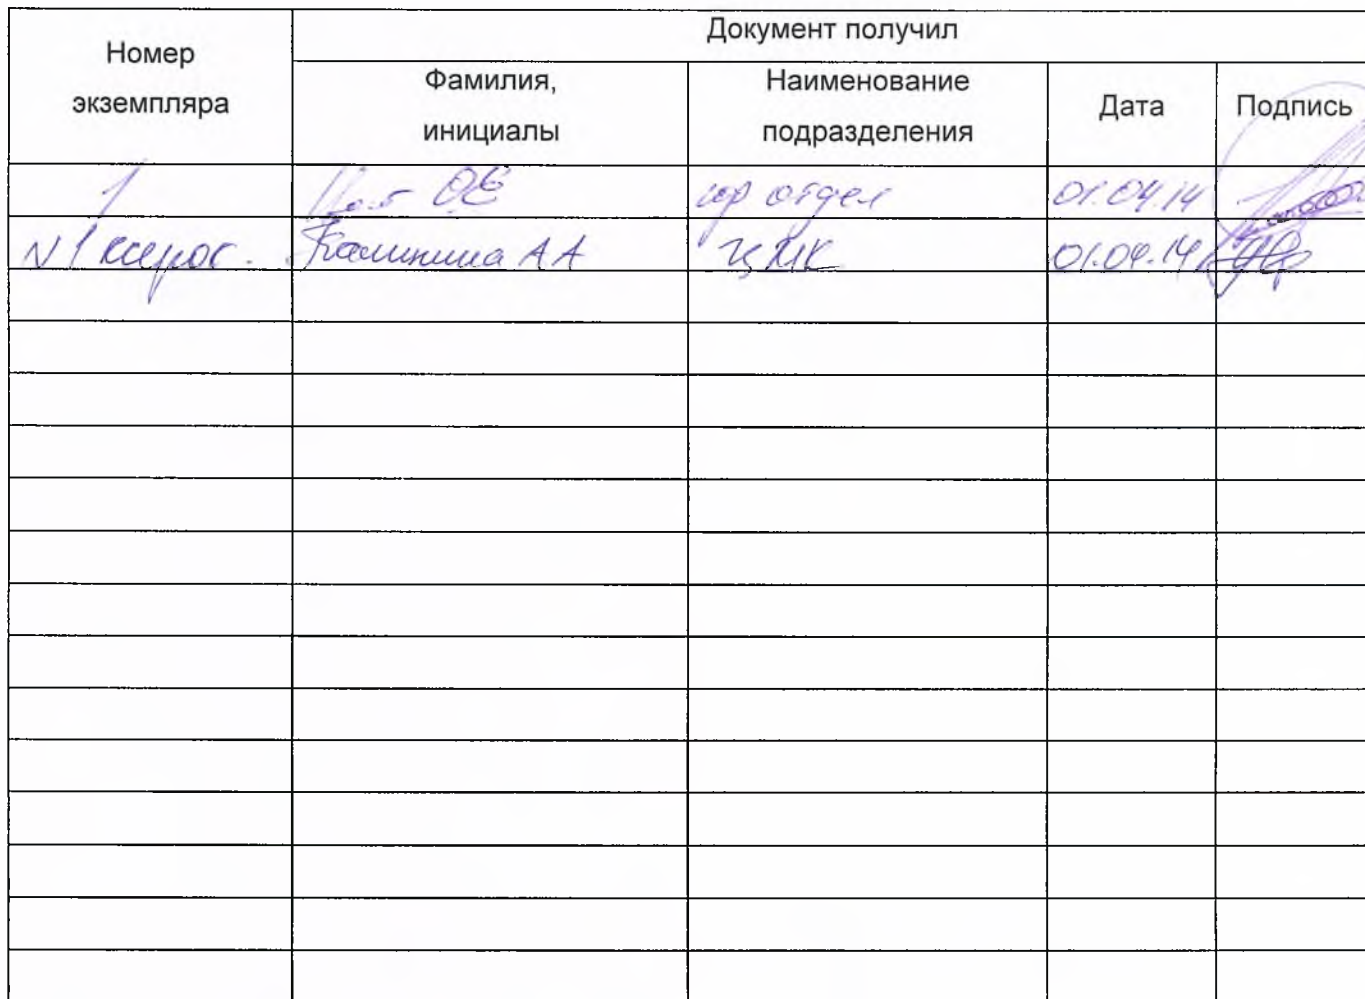 Номер
экземпляра
Документ получил
Фамилия,
инициалы
Наименование
подразделения
Дата
Подпись
1
ОЕ
юр отдел
01.04.14
N 1 ксерос.
Калинина АА
ЦМК
01.04.14